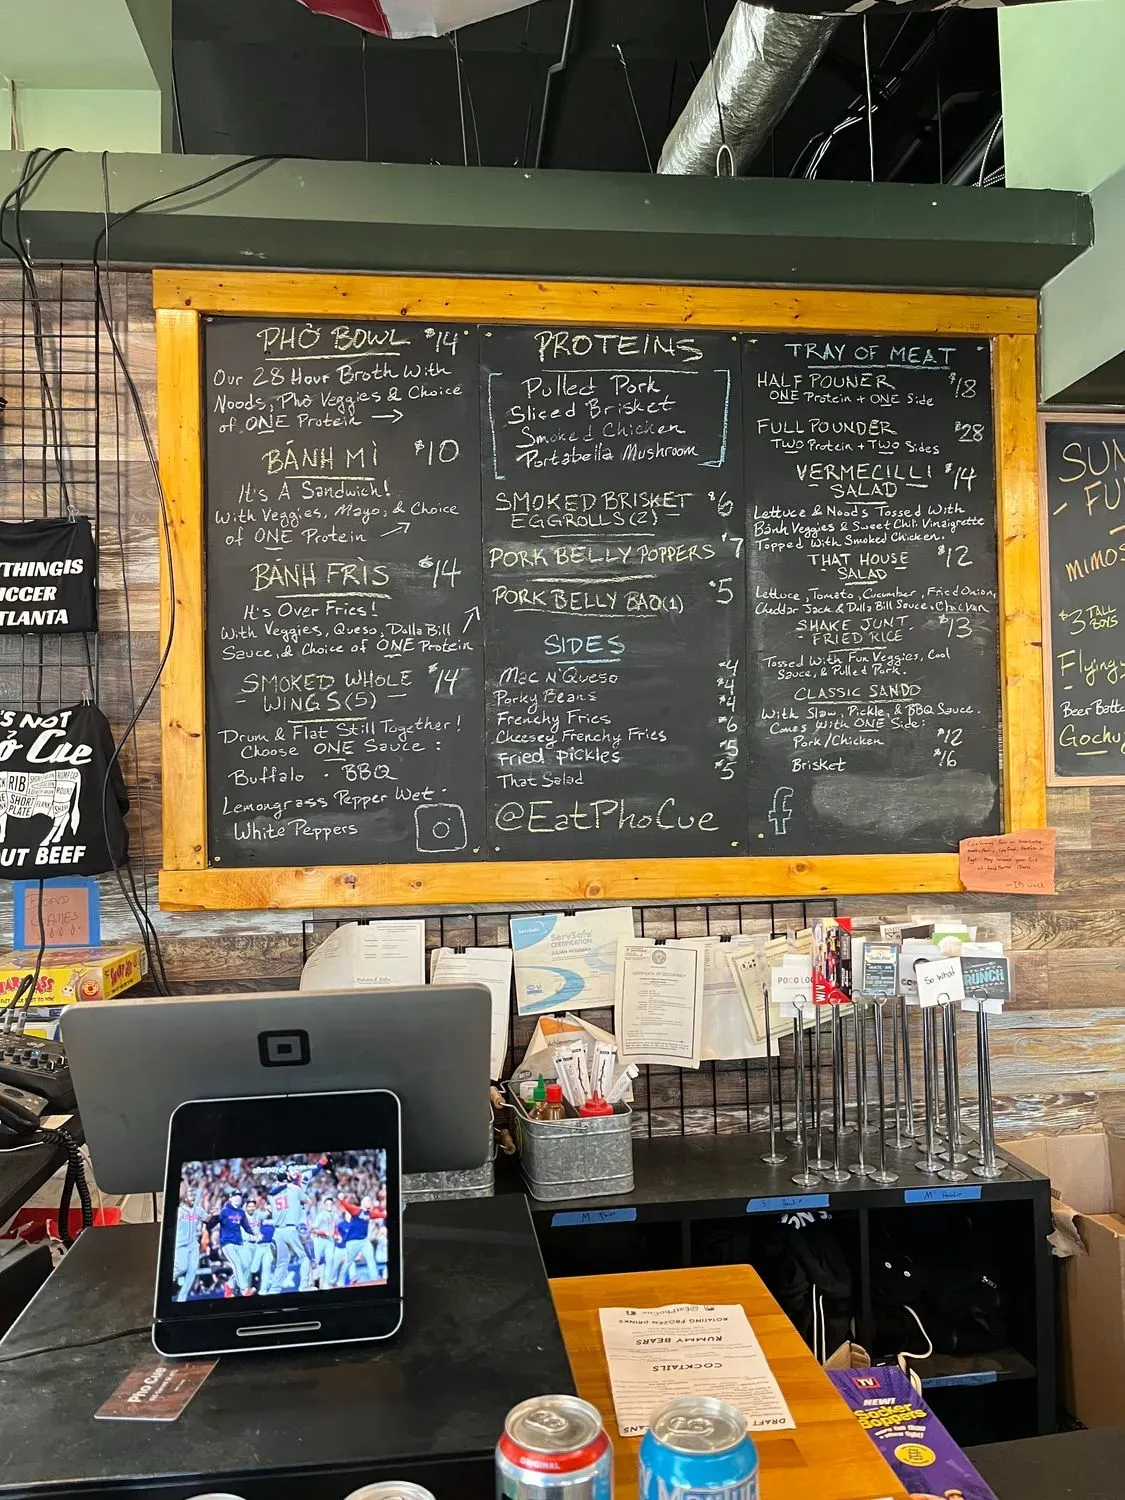 PHỞ BOWL $14
Our 28 Hour Broth With
Noods, Phở Veggies & Choice
of ONE Protein →
BÁNH MÌ $10
It's A Sandwich!
With Veggies, Mayo, & Choice
of ONE Protein
BÁNH FRÌS $14
It's Over Fries!
With Veggies, Queso, Dolla Bill
Sauce, & Choice of ONE Protein
SMOKED WHOLE $14
- WINGS(5)
Drum & Flat Still Together!
Choose ONE Sauce:
Buffalo · BBQ
Lemongrass Pepper Wet ·
White Peppers
PROTEINS
Pulled Pork
Sliced Brisket
Smoked Chicken
Portabella Mushroom
SMOKED BRISKET $6
EGGROLLS(2)
PORK BELLY POPPERS $7
PORK BELLY BAO(1) $5
SIDES
Mac N Queso $4
Porky Beans $4
Frenchy Fries $4
Cheesey Frenchy Fries $6
Fried Pickles $5
That Salad $5
@EatPhoCue
TRAY OF MEAT
HALF POUNER $18
ONE Protein + ONE Side
FULL POUNDER $28
TWO Protein + TWO Sides
VERMECILLI $14
SALAD
Lettuce & Noods Tossed With
Bánh Veggies & Sweet Chili Vinaigrette
Topped With Smoked Chicken.
THAT HOUSE $12
SALAD
Lettuce, Tomato, Cucumber, Fried Onion,
Cheddar Jack & Dolla Bill Sauce, Chicken
SHAKE JUNT $13
- FRIED RICE -
Tossed With Fun Veggies, Cool
Sauce, & Pulled Pork.
CLASSIC SANDO
With Slaw, Pickle, & BBQ Sauce.
Comes With ONE Side:
Pork/Chicken $12
Brisket $16
f
SUN
- FU
mimos
$3 TALL
BOYS
Flying
Beer Batte
Gochu
YTHINGIS
ICCER
TLANTA
'S NOT
ở Cue
RIB
SHORT
PLATE
ROUND
OUT BEEF
ServSafe
CERTIFICATION
CERTIFICATE OF OCCUPANCY
So What
afterpay
51
Pho Cue
@EatPhoCue
ROTATING FROZEN DRINKS
RUMMY BEARS
COCKTAILS
DRAFT
CANS
TV
NEW!
Socker
Boppers
ORIGINAL